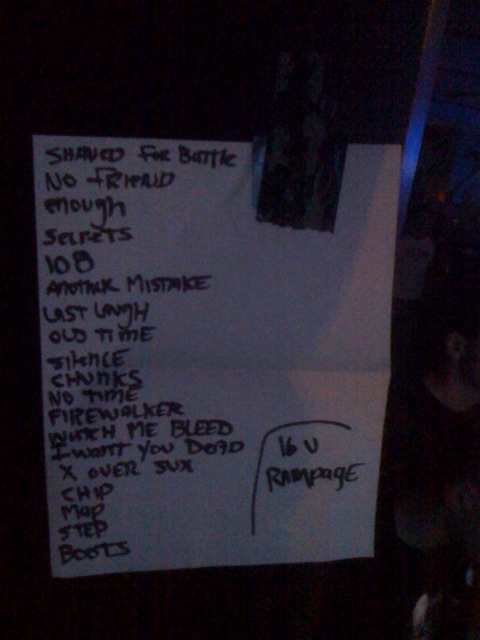 SHAVED FOR BATTLE
NO FRIEND
ENOUGH
SECRETS
108
ANOTHER MISTAKE
LAST LAUGH
OLD TIME
SILENCE
CHUNKS
NO TIME
FIREWALKER
WATCH ME BLEED
I WANT YOU DEAD
X OVER SUX
CHIP
MAP
STEP
BOOTS
16 U
RAMPAGE